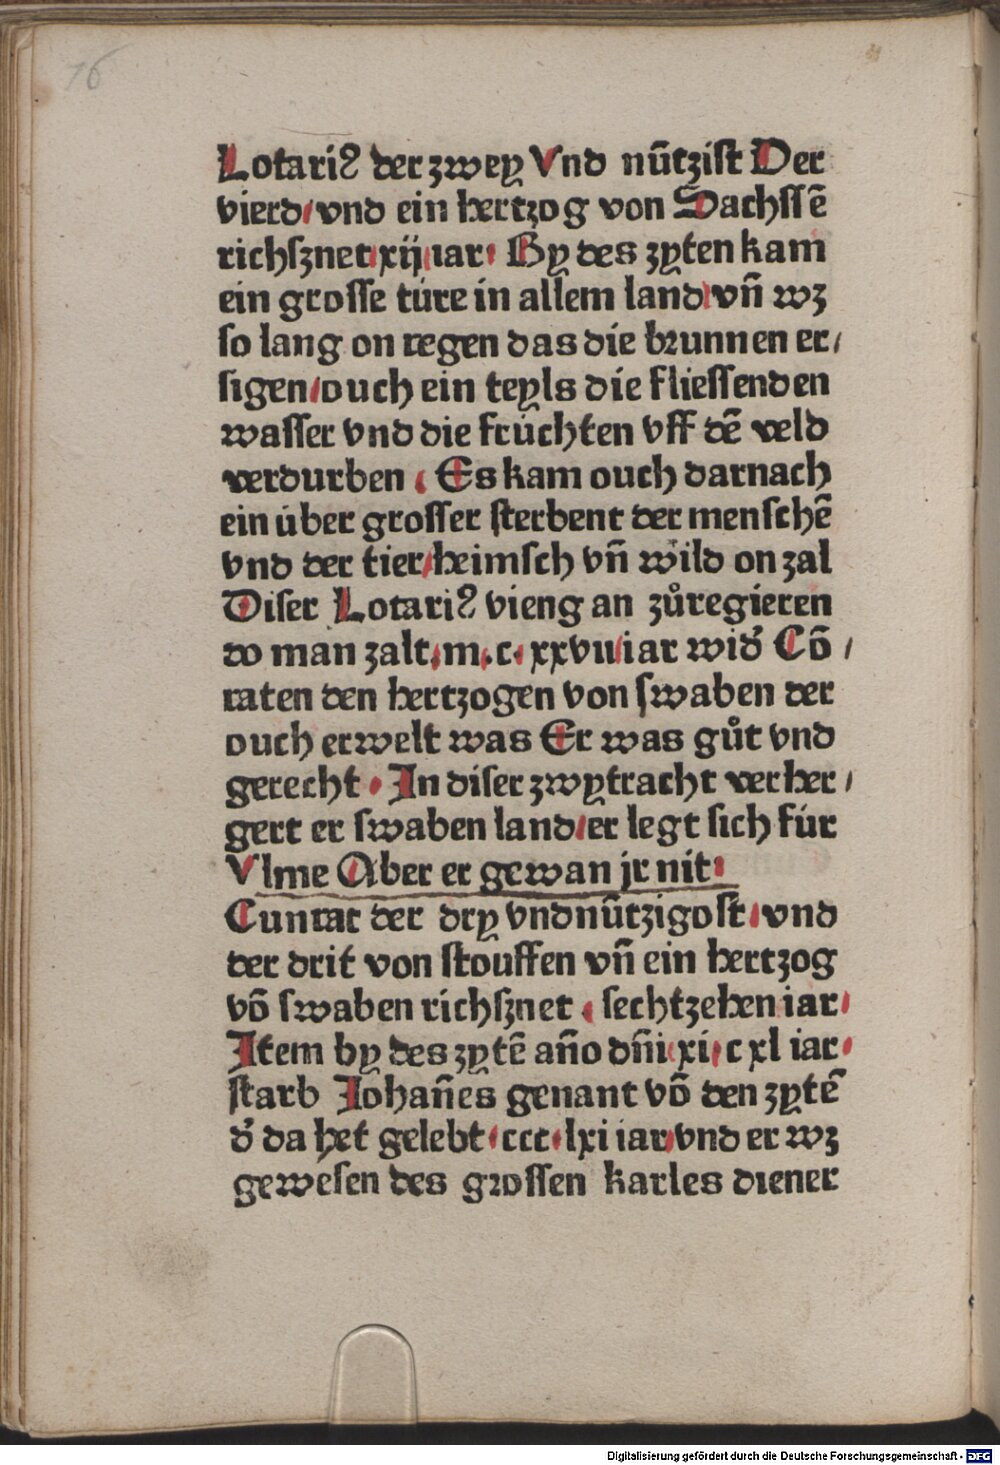 76
Lotariꝰ der zwey Vnd nūtzist Der
vierd/ vnd ein hertzog von Sachssē
richßnet xij iar· By des zyten kam
ein grosse túre in allem land vn̄ wz
so lang on regen das die brunnen er/
sigen/ ouch ein teyls die fliessenden
wasser vnd die frúchten vff dē veld
verdurben · Es kam ouch darnach
ein úber grosser sterbent der menschē
vnd der tier/ heimsch vn̄ wild on zal
Diser Lotariꝰ vieng an zůregieren
do man zalt·m·c·xxvii iar wid̓ Cō/
raten den hertzogen von swaben der
ouch erwelt was Er was gůt vnd
gerecht · In diser zwytracht verher/
gert er swaben land/ er legt sich fúr
Vlme Aber er gewan jr nit·
Cunrat der dry vndnūtzigost/ vnd
der drit von stouffen vn̄ ein hertzog
vō swaben richßnet · sechtzehen iar·
Item by des zytē an̄o dn̄i xi·c xl iar·
starb Iohan̄es genant vō den zytē
d̓ da het gelebt·ccc·lxi iar/ vnd er wz
gewesen des grossen karles diener
Digitalisierung gefördert durch die Deutsche Forschungsgemeinschaft - DFG